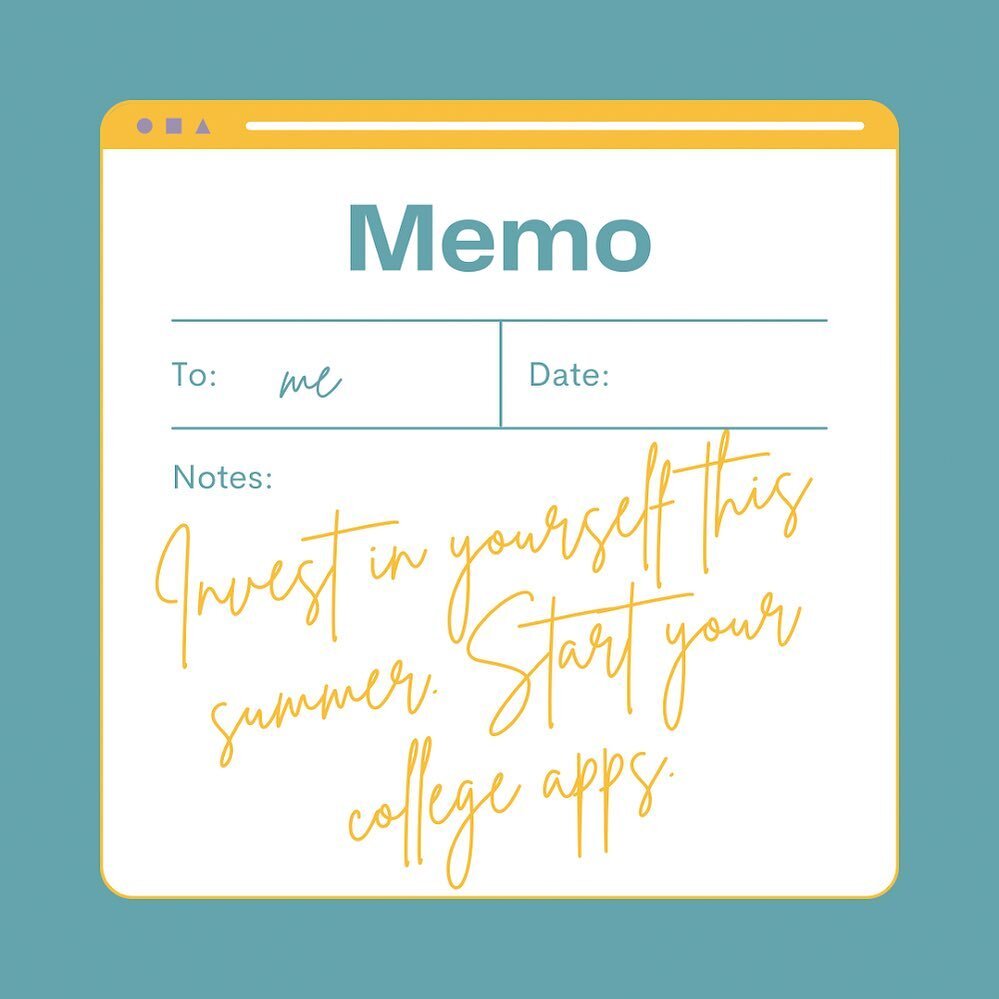 Memo
To: me
Date:
Notes:
Invest in yourself this
summer. Start your
college apps.